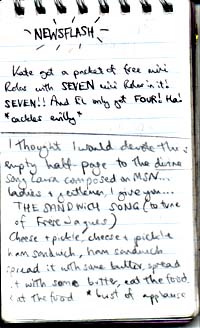 NEWSFLASH
Kate got a packet of free mini
Rolos with SEVEN mini Rolos in it!
SEVEN!! And EL only got FOUR! Ha!
*cackles evilly*
I thought I would devote this
empty half-page to the divine
song Laura composed on MSN...
ladies & gentlemen, I give you...
THE SANDWICH SONG (to tune
of Frere Jaques)
Cheese + pickle, cheese + pickle
ham sandwich, ham sandwich
spread it with some butter, spread
it with some butter, eat the food,
eat the food *burst of applause